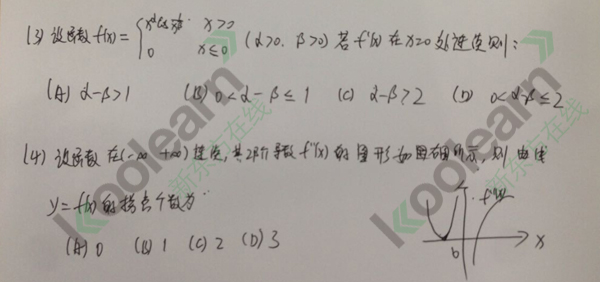 (3) 设函数 f(x) = { x^α cos 1/x^β, x>0
0 x≤0 (α>0, β>0) 若 f'(x) 在 x=0 处连续则:
(A) α-β>1 (B) 0<α-β≤1 (C) α-β>2 (D) 0<α-β≤2
(4) 设函数在(-∞ +∞)连续, 其2阶导数 f''(x) 的图形如图右图所示, 则曲线
y=f(x)的拐点个数为
(A) 0 (B) 1 (C) 2 (D) 3
f''(x)
0 x
koolearn
新东方在线